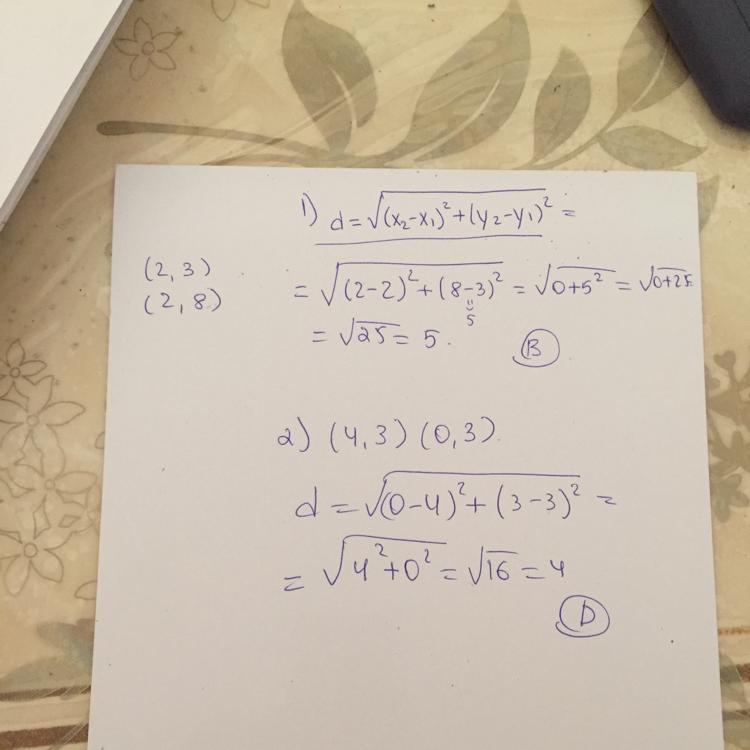 1) d=√(x₂-x₁)²+(y₂-y₁)² =
(2,3)
(2,8)
= √(2-2)²+(8-3)² = √0+5² = √0+25
=
5
= √25 = 5.
B
2) (4,3) (0,3).
d = √(0-4)²+(3-3)² =
= √4²+0² = √16 = 4
D